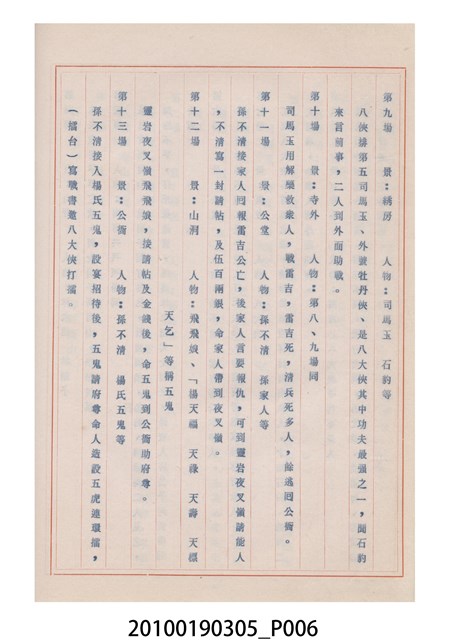 第九場　景：綉房　人物：司馬玉　石豹等
八俠排第五司馬玉、外號牡丹俠、是八大俠其中功夫最强之一，聞石豹
來言前事，二人到外面助戰。
第十場　景：寺外　人物：第八、九場同
司馬玉用解藥救衆人，戰雷吉，雷吉死，清兵死多人，餘逃囘公衙。
第十一場　景：公堂　人物：孫不清　孫家人等
孫不清接家人囘報雷吉公亡，後家人言要報仇，可到靈岩夜叉嶺請能人
，不清寫一封請帖，及伍百兩銀，命家人帶到夜叉嶺。
第十二場　景：山洞　人物：飛飛娘、「楊天福　天祿　天壽　天
天乞」等稱五鬼
靈岩夜叉嶺飛飛娘，接請帖及金錢後，命五鬼到公衙助府尊。
第十三場　景：公衙　人物：孫不清　楊氏五鬼等
孫不清接入楊氏五鬼，設宴招待後，五鬼請府尊命人造設五虎連環擂，
（擂台）寫戰書邀八大俠打擂。
20100190305_P006